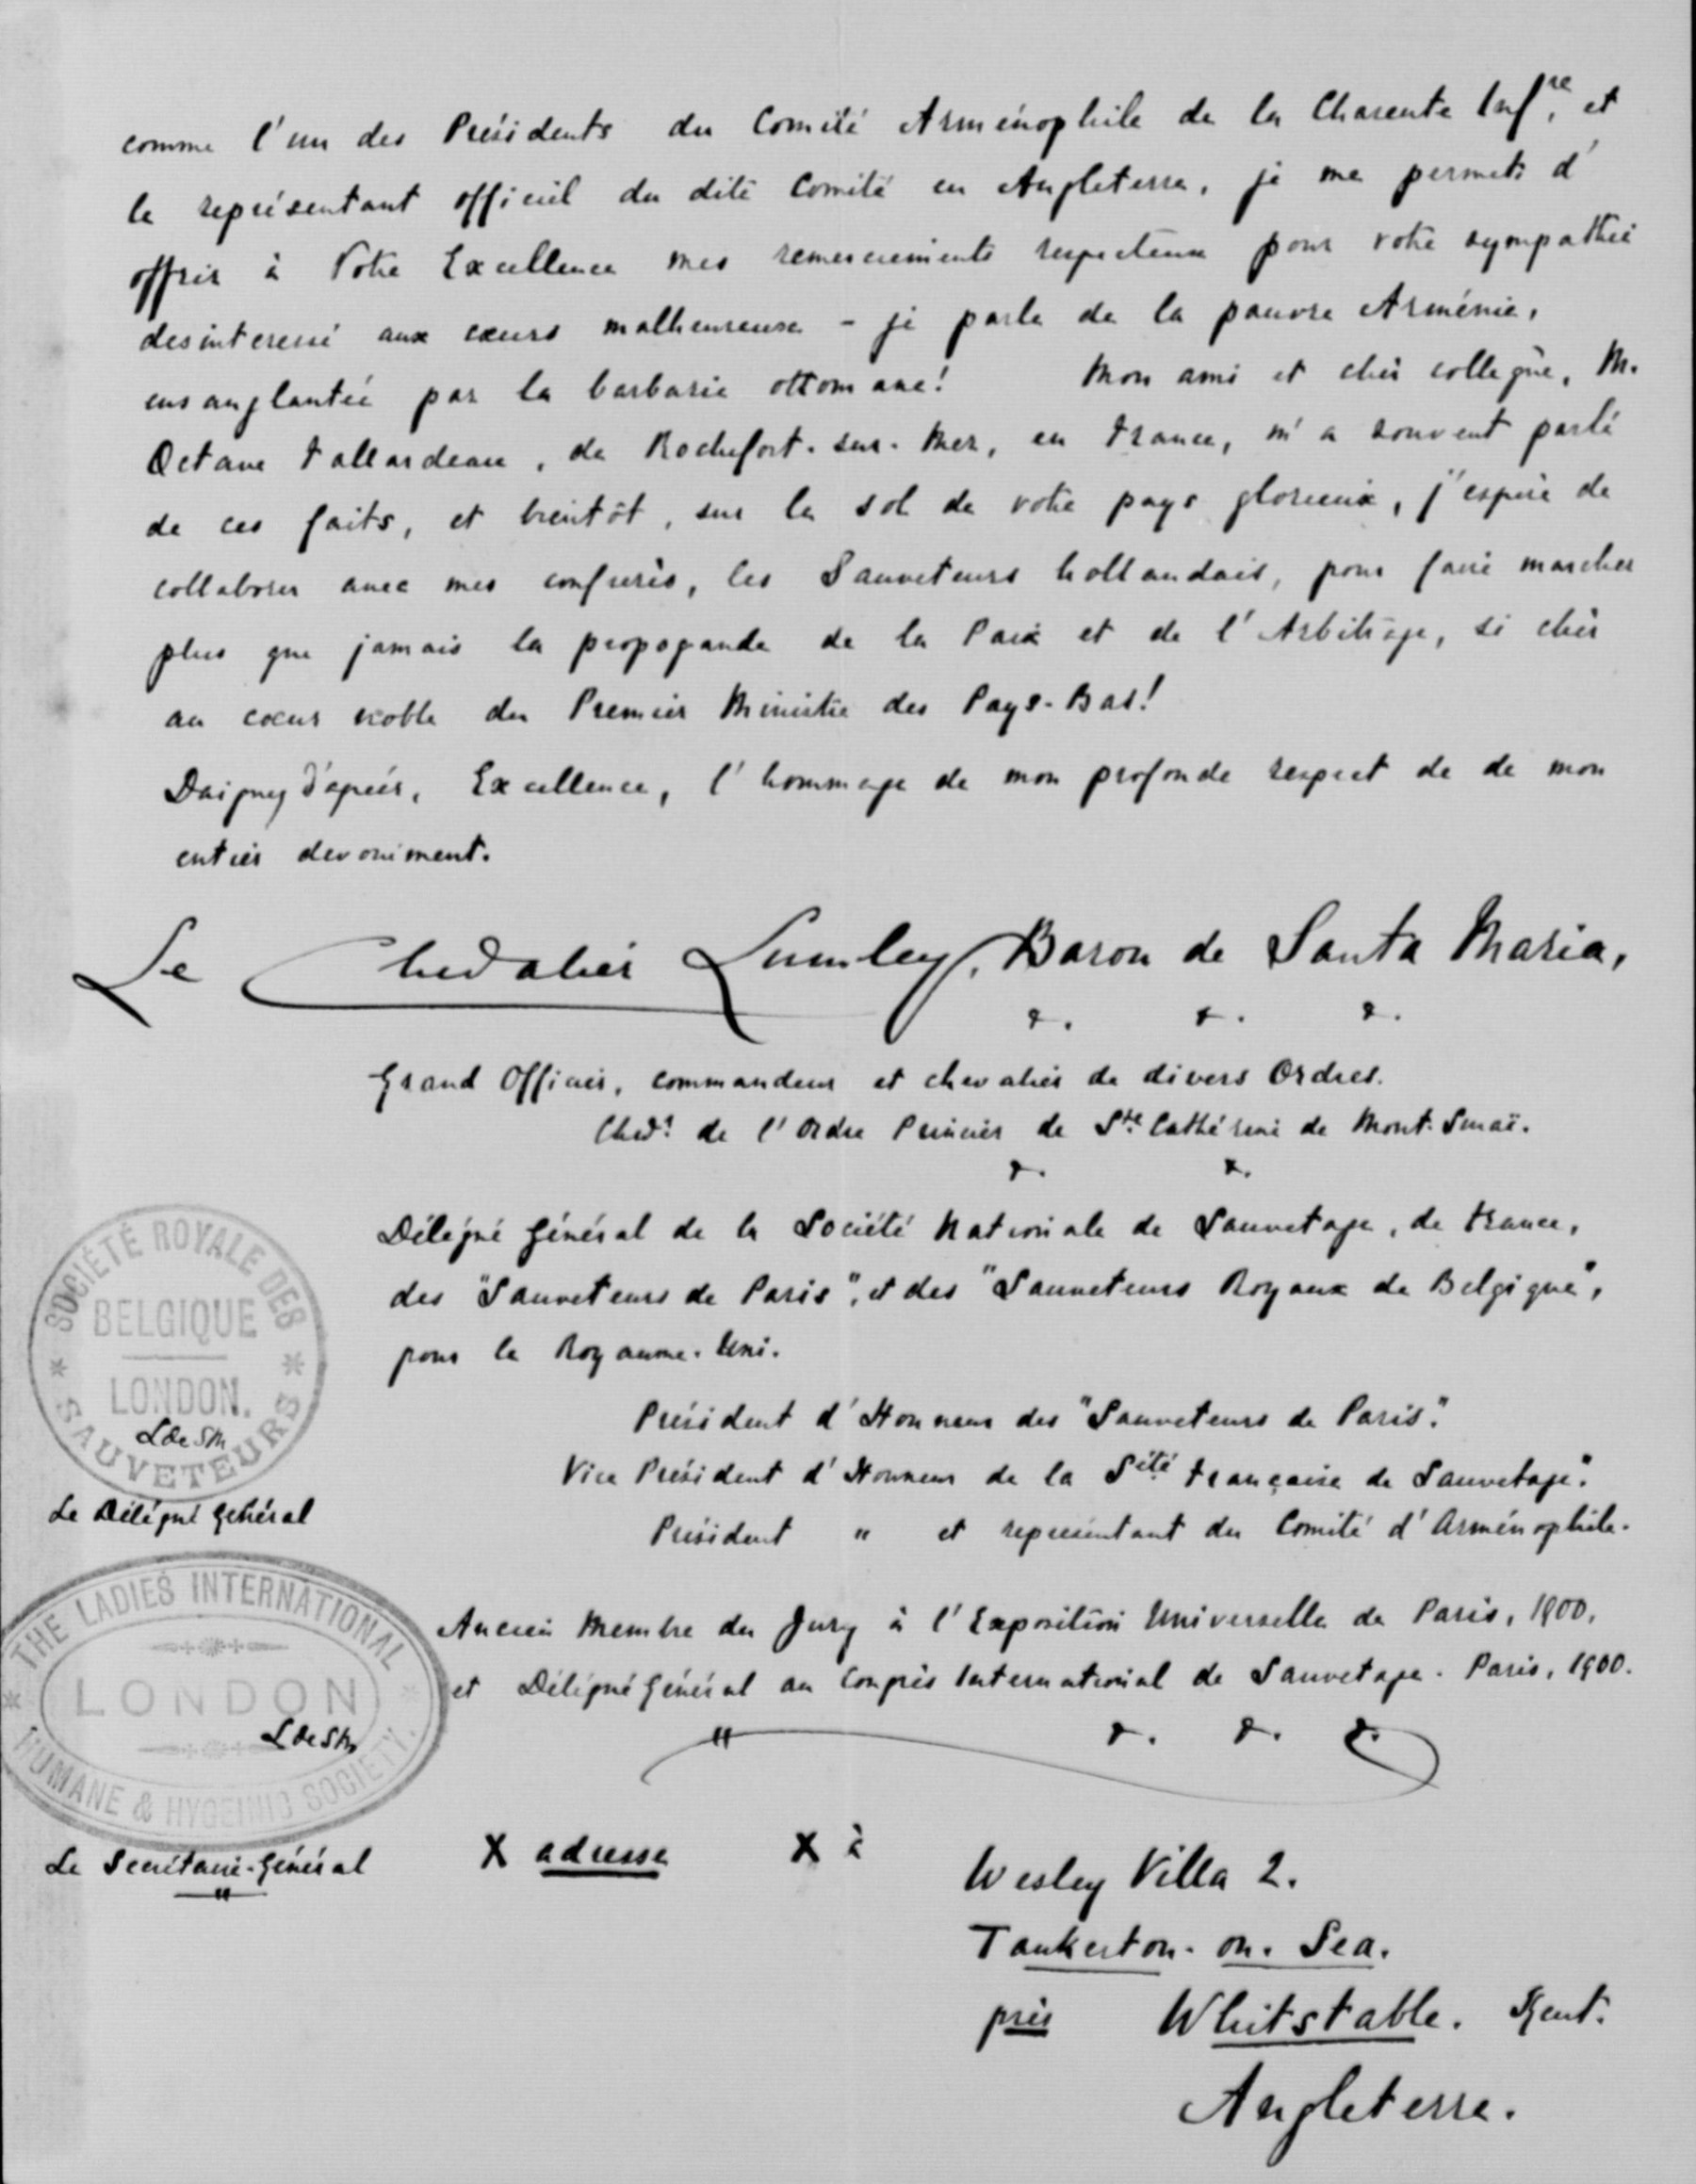 comme l'un des Présidents du Comité Arménophile de la Charente Inf.re et
le représentant officiel du dite Comité en Angleterre, je me permets d'
offrir à Votre Excellence mes remerciements respecteux pour votre sympathie
desinteressé aux cœurs malheureuse – je parle de la pauvre Arménie,
ensanglantée par la barbarie ottomane! Mon ami et cher collegue, M.
Octave Tallardeau, de Rochefort-sur-Mer, en France, m'a souvent parlé
de ces faits, et bientôt, sur le sol de votre pays glorieux, j'espère de
collaborer avec mes confrères, les Sauveteurs hollandais, pour faire marcher
plus que jamais la propogande de la Paix et de l'Arbitrage, si cher
au cœur noble du Premier Ministre des Pays-Bas!
Excellence, l'hommage de mon profonde respect de de mon
entier devouiment.
Le Chevalier Lumley, Baron de Santa Maria,
&. &. &.
Grand Officier, commandeur et chevalier de divers Ordres.
Chevr de l'Ordre Princier de Ste Cathérine de Mont. Sinaï.
&. &.
Délégué Général de la Société Nationale de Sauvetage, de France,
des "Sauveteurs de Paris", et des "Sauveteurs Royaux de Belgique",
pour le Royaume-Uni.
Président d'Honneur des "Sauveteurs de Paris."
Vice Président d'Honneur de la Sité Française de Sauvetage."
Président " et representant du Comité d'Arménophile.
Ancien Membre du Jury à l'Exposition Universelle de Paris, 1900,
et Délégué Général au Congrès International de Sauvetage. Paris, 1900.
" &. &. &.
SOCIÉTÉ ROYALE DES
BELGIQUE
LONDON.
L de SM
SAUVETEURS
Le Délégué Général
THE LADIES INTERNATIONAL
LONDON
L de SM
HUMANE & HYGEINIC SOCIETY.
Le Secrétaire-Général
"
X adresse X à
Wesley Villa 2.
Tankerton-on-Sea.
près Whitstable. Kent.
Angleterre.